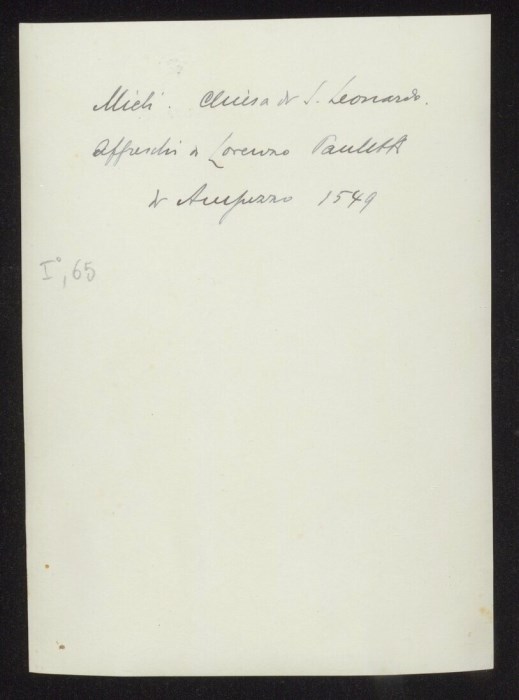 Mieli. Chiesa di S. Leonardo.
Affreschi di Lorenzo Pauletti
di Ampezzo 1549
I°, 65